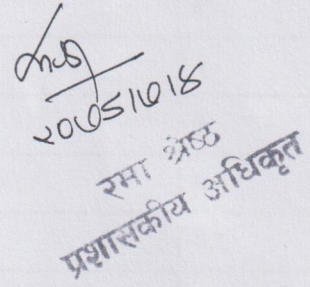 २०७५।७।४
रमा श्रेष्ठ
प्रशासकीय अधिकृत